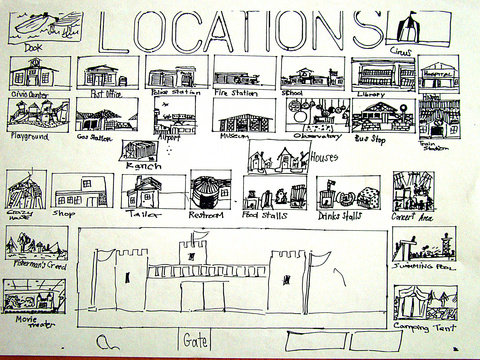 LOCATIONS
Dook
Circus
Civic Center
Post Office
Police Station
Fire Station
School
Library
HOSPITAL
Playground
Gas Station
Airport
Museum
Observatory
Bus Stop
Train Station
Ranch
Houses
Crazy House
Shop
Tailor
Restroom
Food Stalls
Drinks Stalls
Concert Area
Fisherman's
SWIMMING POOL
Movie Theater
Camping Tent
Gate